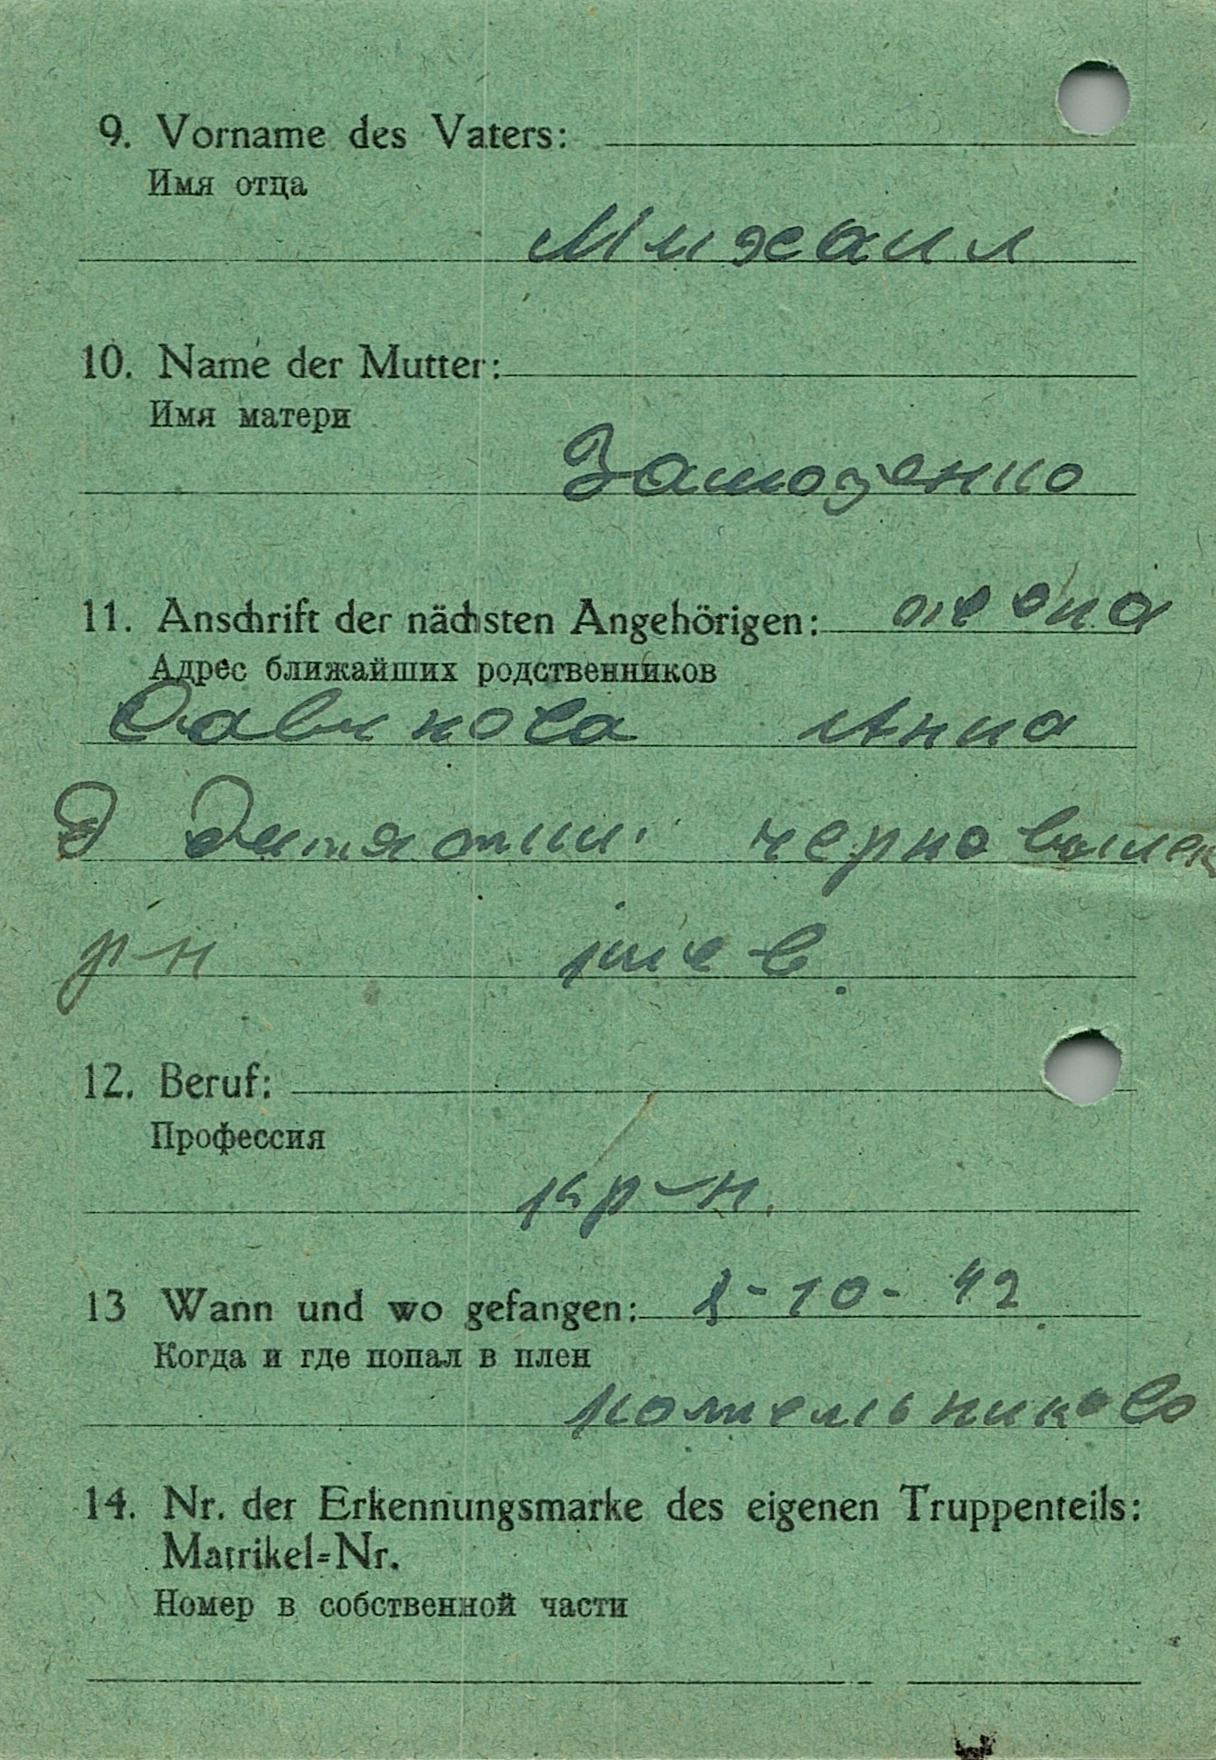 9. Vorname des Vaters:
Имя отца
Михаил
10. Name der Mutter:
Имя матери
11. Anschrift der nächsten Angehörigen: жена
Адрес ближайших родственников
Савикова Анна
д Дитятки
р-н киев.
12. Beruf:
Профессия
кр-н.
13 Wann und wo gefangen: 8-10-42
Когда и где попал в плен
котельниково
14. Nr. der Erkennungsmarke des eigenen Truppenteils:
Matrikel-Nr.
Номер в собственной части